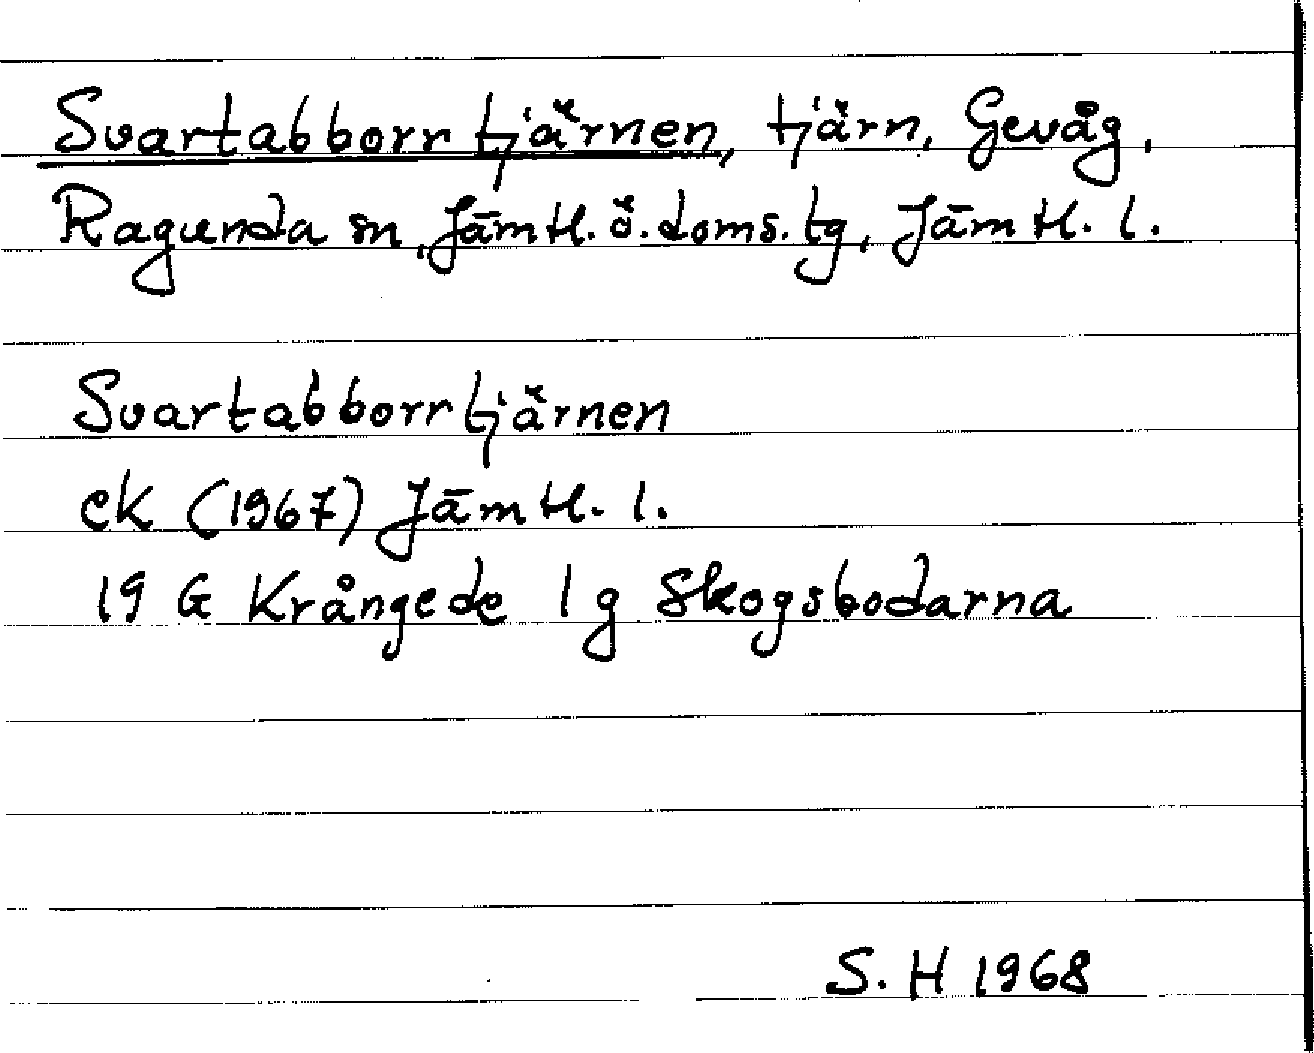 Svartabborrtjärnen, tjärn, Gevåg,
Ragunda sn, Jämtl. ö. doms. tg, Jämtl. l.
Svartabborrtjärnen
ek (1967) Jämtl. l.
19 G Krångede 1 g Skogsbodarna
S. H 1968